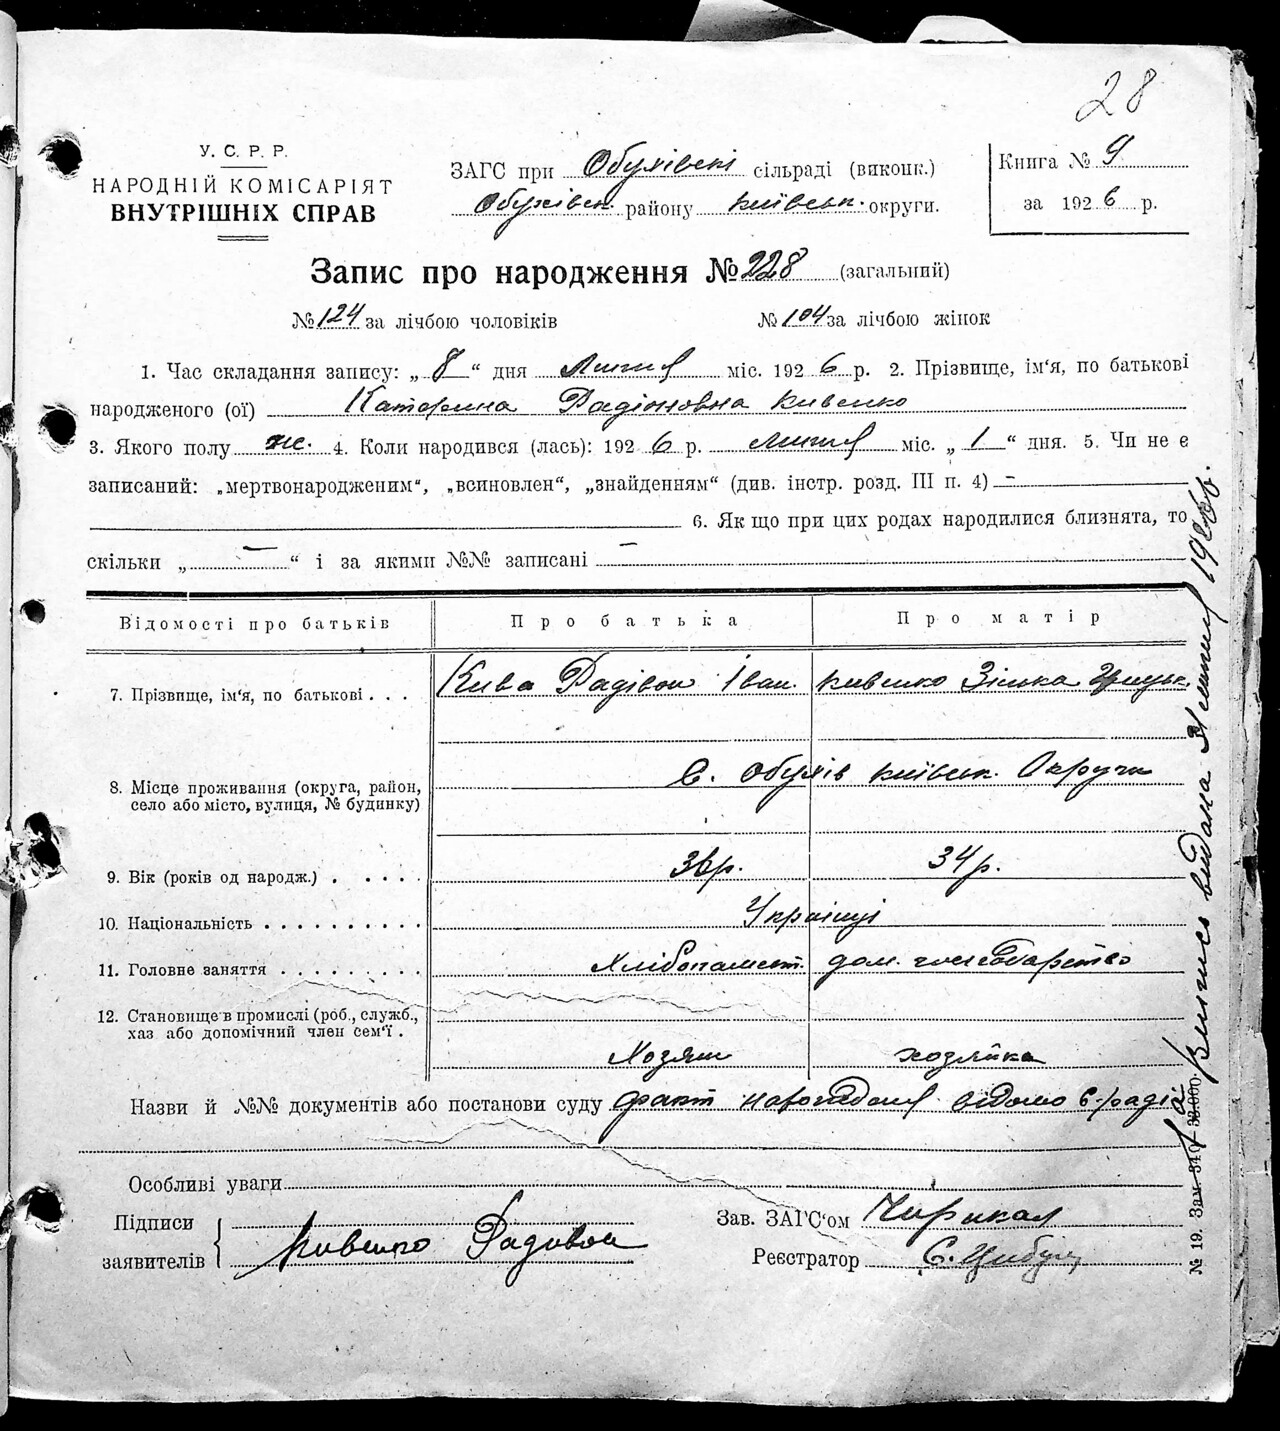 28
У. С. Р. Р.
НАРОДНІЙ КОМІСАРІЯТ
ВНУТРІШНІХ СПРАВ
ЗАГС при Обухівські сільраді (виконк.)
Обухівськ. району київськ. округи.
Книга № 9
за 1926 р.
Запис про народження № 228 (загальний)
№ 124 за лічбою чоловіків № 104 за лічбою жінок
1. Час складання запису: „8“ дня Липня міс. 1926 р. 2. Прізвище, ім'я, по батькові
народженого (ої) Катерина Радіоновна Кивенко
3. Якого полу ж. 4. Коли народився (лась): 1926 р. липня міс. „1“ дня. 5. Чи не є
записаний: „мертвонародженим“, „всиновлен“, „знайденням“ (див. інстр. розд. III п. 4) —
6. Як що при цих родах народилися близнята, то
скільки „ — “ і за якими №№ записані —
Відомості про батьків Про батька Про матір
7. Прізвище, ім'я, по батькові . . . Кива Радівон Іван. Кивенко Зінька
8. Місце проживання (округа, район,
село або місто, вулиця, № будинку)
С. Обухів київськ. Округи
9. Вік (років од народж.) . . . . . 36р. 34р.
10. Національність . . . . . . . . . . Українці
11. Головне заняття . . . . . . . . . Хлібопашест. дом. господарство
12. Становище в промислі (роб., служб.,
хаз або допомічний член сем'ї .
Хозяин хозяйка
Назви й №№ документів або постанови суду факт народження відомо с-раді
Особливі уваги
Підписи
заявителів
Кивенко Радивон
Зав. ЗАГС'ом
Реєстратор С.
Випись видана 1926р.
№ 19. Зам. 310—33.000.